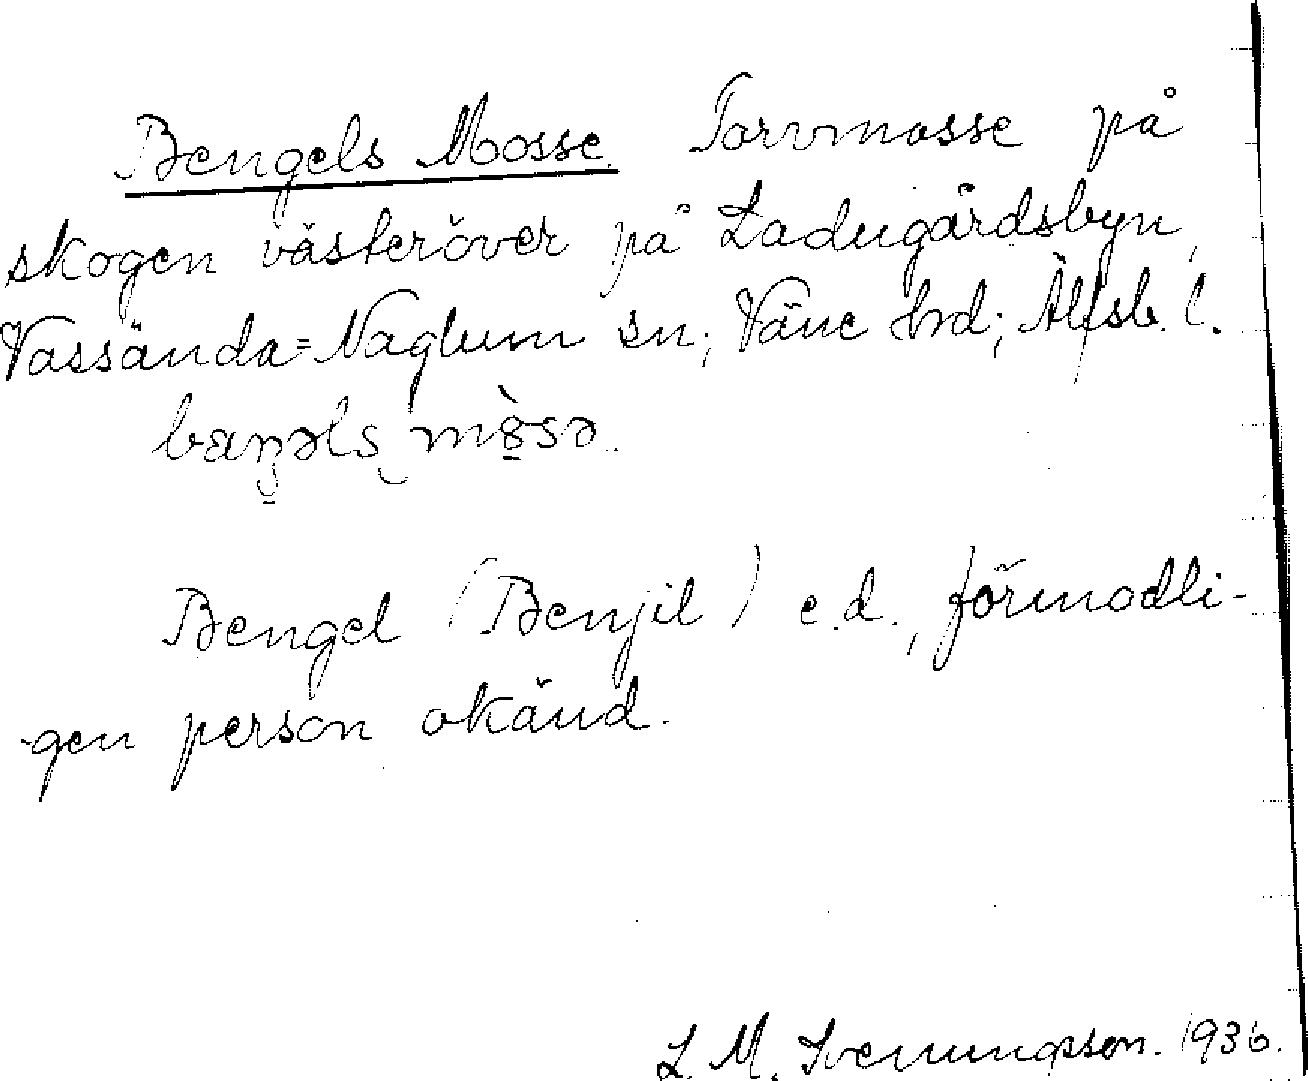 Bengels Mosse. Torvmosse på
skogen västeröver på Ladugårdsbyn,
Vassända=Naglum sn; Väne hrd; Älfsb. l.
bæŋəls mòsə.
Bengel (Benjil) e.d., förmodli-
gen person okänd.
L. M. Svenungsson. 1936.